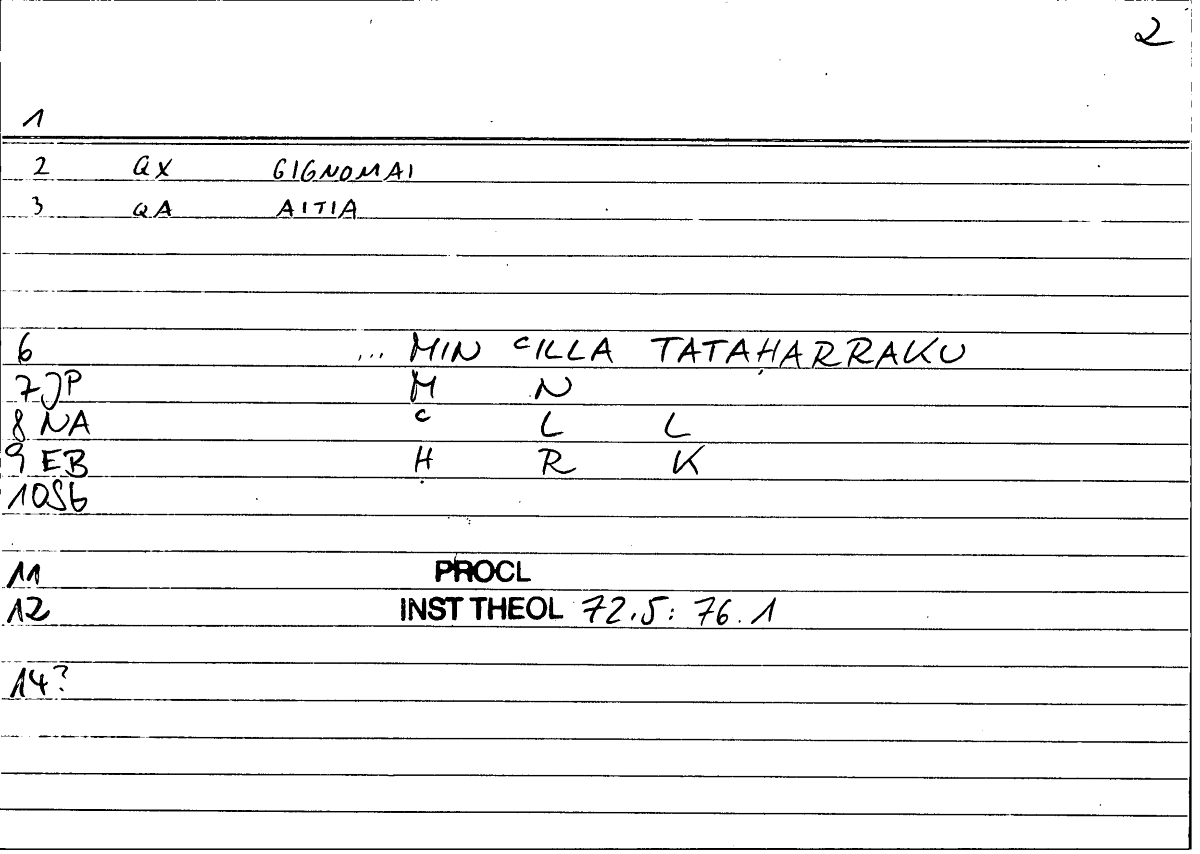 2
1
2 QX GIGNOMAI
3 QA AITIA
6 ... MIN ᶜILLA TATAḤARRAKU
7 JP M N
8 NA ᶜ L L
9 EB Ḥ R K
10 SG
11 PROCL
12 INST THEOL 72.5: 76.1
14?